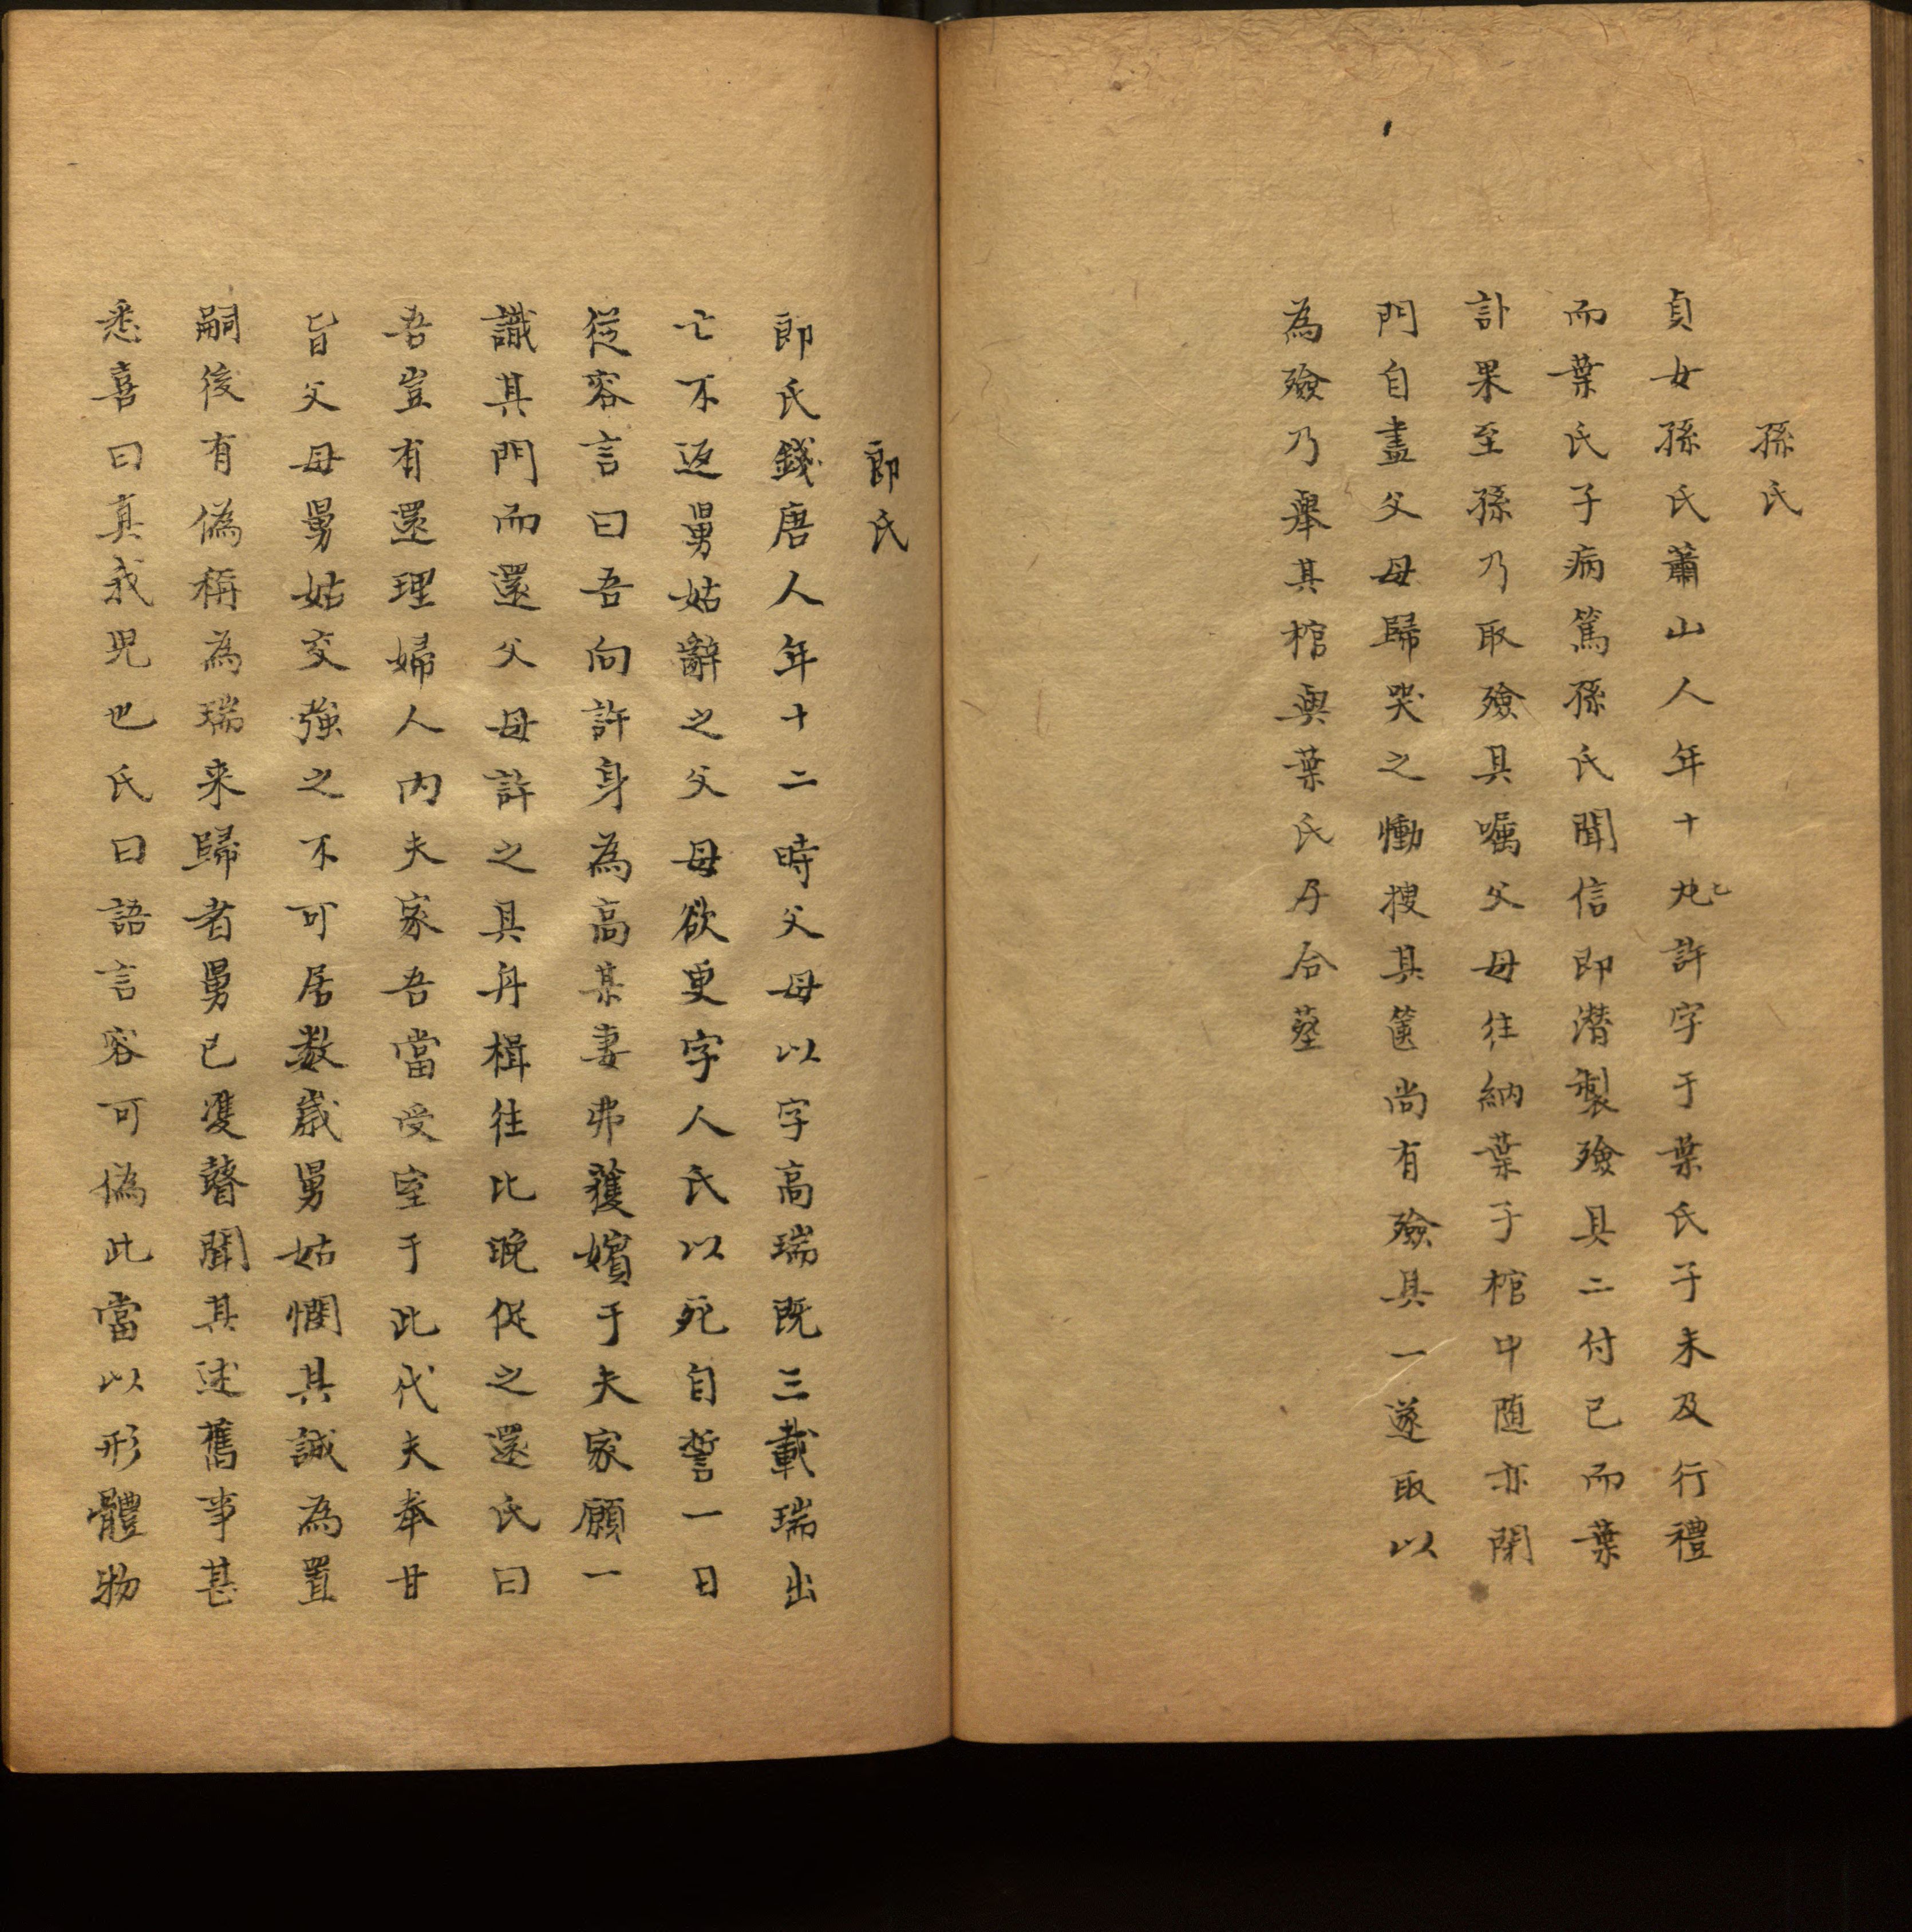 孫氏
貞女孫氏蕭山人年十九許字于葉氏子未及行禮
而葉氏子病篤孫氏聞信即潜製殮具二付已而葉
訃果至孫乃取殮具嘱父母往納葉子棺中随亦閉
門自盡父母歸哭之慟搜其篋尚有殮具一遂取以
為殮乃舉其棺與葉氏子合塟
郎氏
郎氏錢唐人年十二時父母以字高瑞既三載瑞出
亡不返舅姑辭之父母欲更字人氏以死自誓一日
從容言曰吾向許身為高某妻弗獲嬪于夫家願一
識其門而還父母許之具舟楫往比晚促之還氏曰
吾豈有還理婦人内夫家吾當受室于此代夫奉甘
旨父母舅姑交強之不可居数歲舅姑憫其誠為置
嗣後有偽稱為瑞来歸者舅已雙瞽聞其述舊事甚
悉喜曰真我児也氏曰語言容可偽此當以形體物